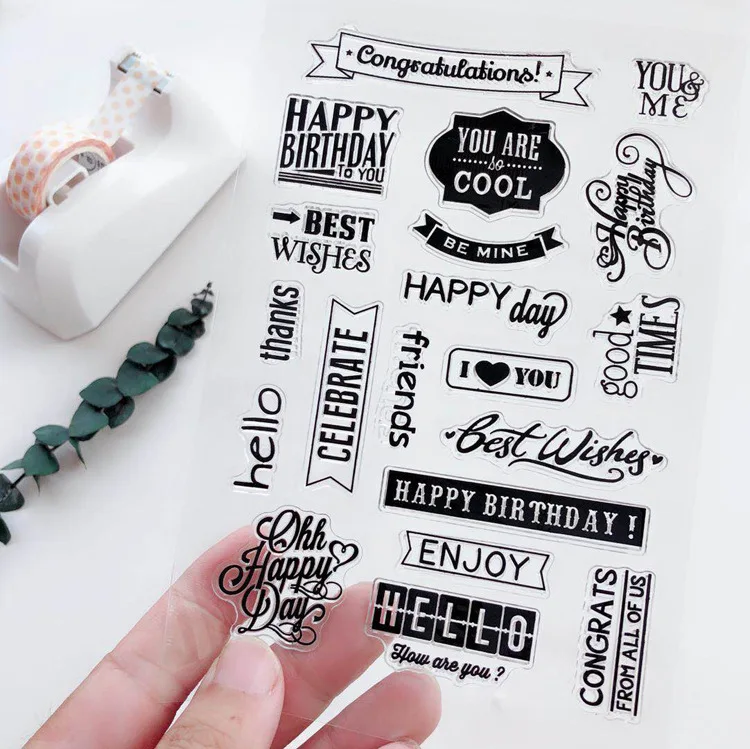 Congratulations!
YOU &
ME
HAPPY
BIRTHDAY
TO YOU
YOU ARE
so
COOL
Happy
Birthday
BEST
WISHES
BE MINE
HAPPY day
thanks
CELEBRATE
friends
good
TIMES
I ♥ YOU
hello
Best Wishes
HAPPY BIRTHDAY !
Ohh
Happy
Day
ENJOY
HELLO
How are you ?
CONGRATS
FROM ALL OF US